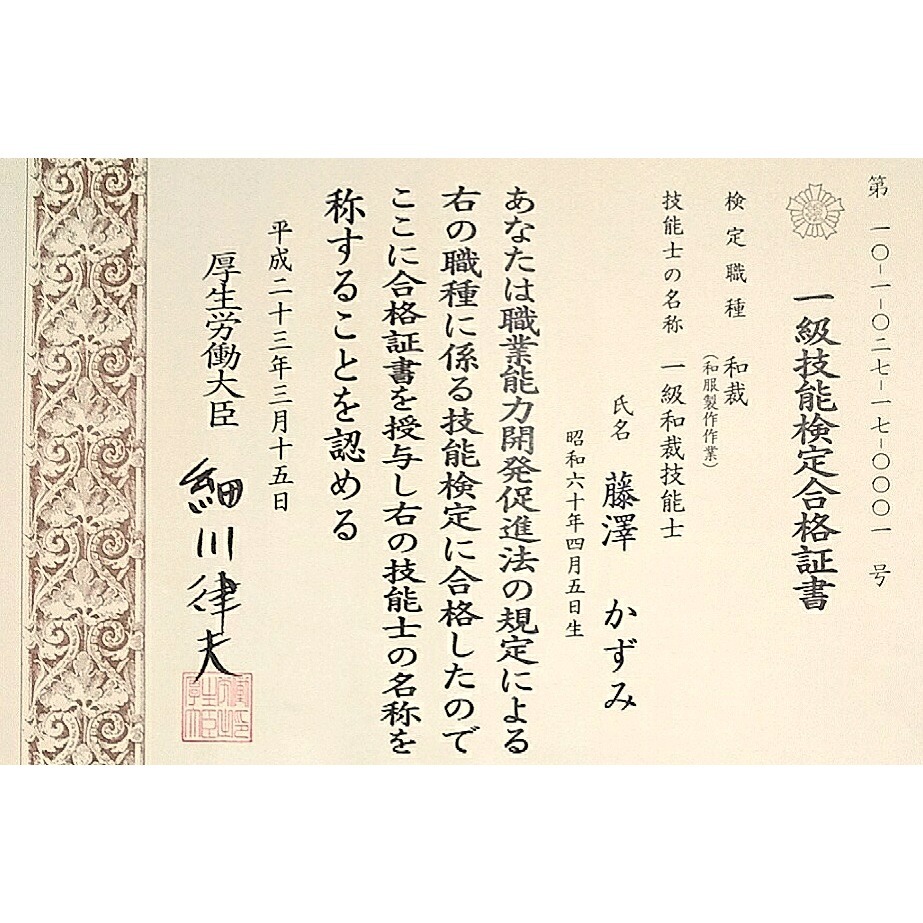 第一〇-一-〇二七-一七-〇〇〇一号
一級技能検定合格証書
検定職種 和裁
(和服製作作業)
技能士の名称 一級和裁技能士
氏名 藤澤 かずみ
昭和六十年四月五日生
あなたは職業能力開発促進法の規定による
右の職種に係る技能検定に合格したので
ここに合格証書を授与し右の技能士の名称を
称することを認める
平成二十三年三月十五日
厚生労働大臣 細川律夫